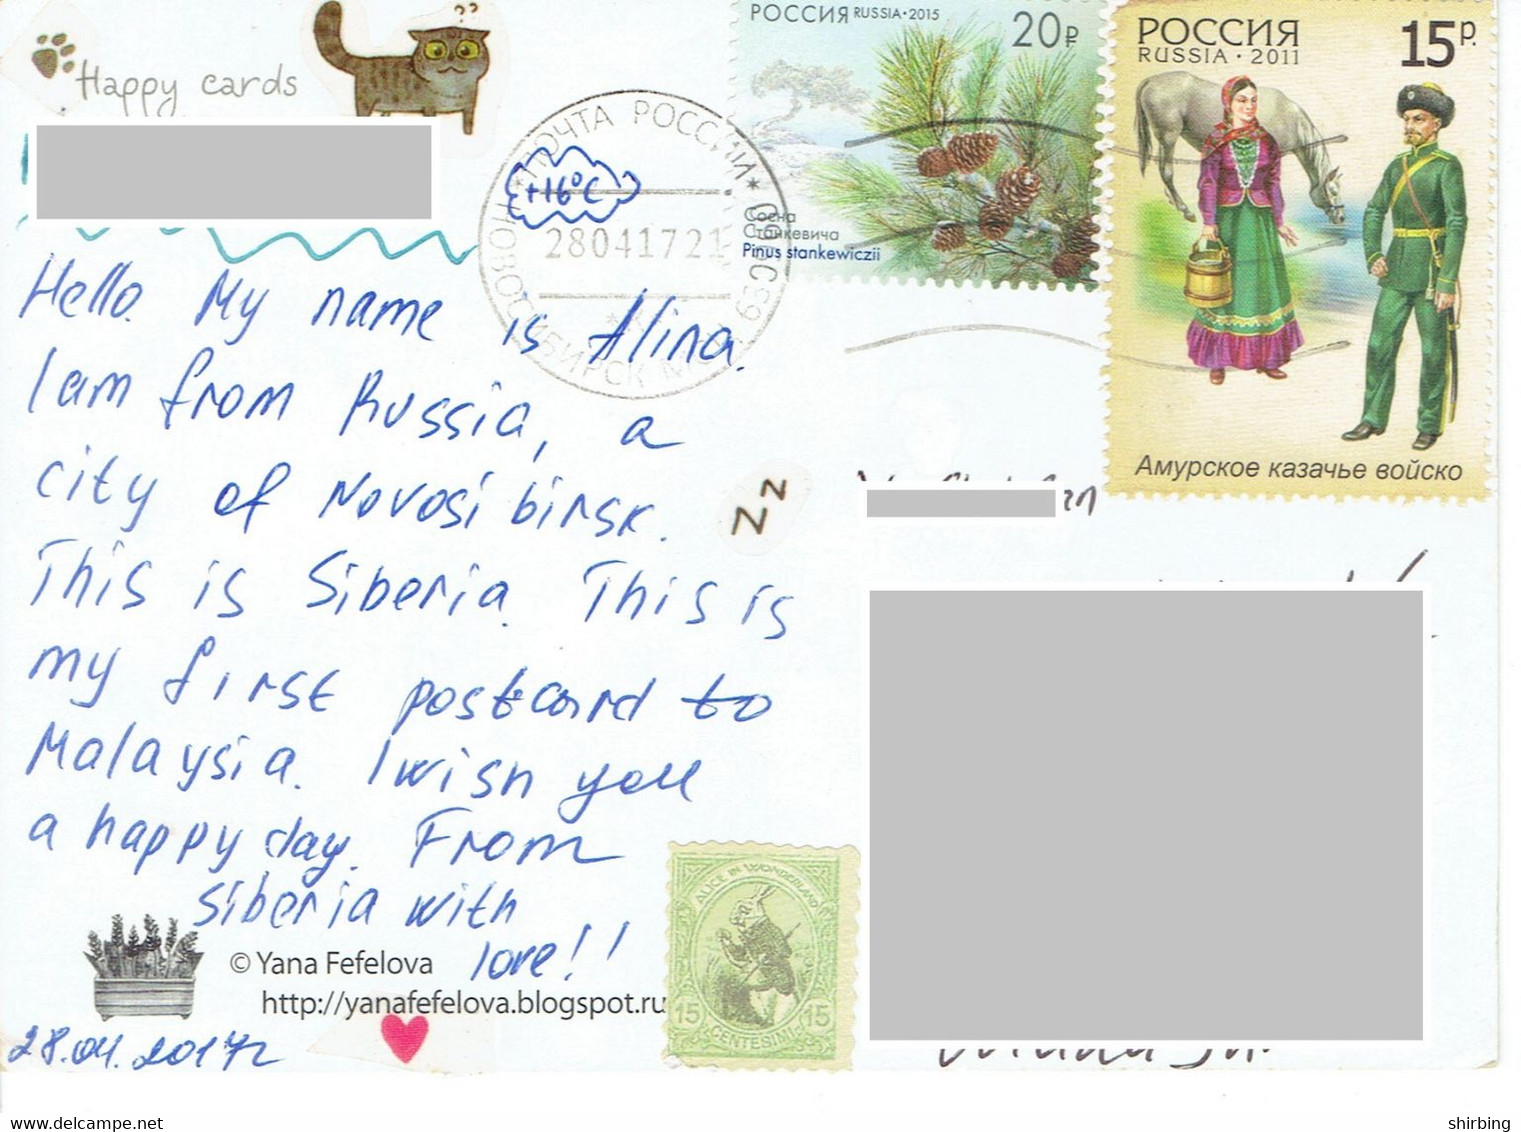 ??
Happy cards
РОССИЯ RUSSIA • 2015
20₽
РОССИЯ
RUSSIA • 2011
15р.
ПОЧТА РОССИИ
НОВОСИБИРСК
+16°C
2804172
Сосна
Станкевича
Pinus stankewiczii
Амурское казачье войско
Hello. My name is Alina.
I am from Russia, a
city of Novosibirsk.
This is Siberia. This is
my first postcard to
Malaysia. I wish you
a happy day. From
Siberia with
love!!
Zz
© Yana Fefelova
http://yanafefelova.blogspot.ru
28.04.2017г
ALICE IN WONDERLAND
15 15
CENTESIMI
shirbing